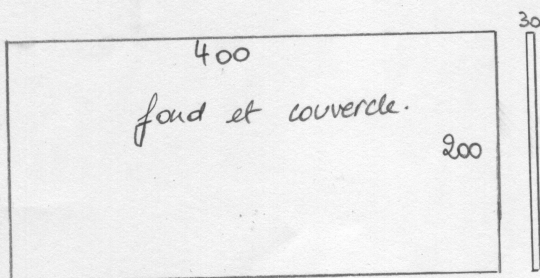 400
30
fond et couvercle.
200